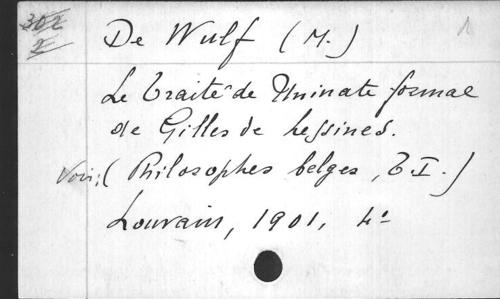 302
2
1
De Wulf (M.)
Le traité de Uninate formae
de Gilles de Lessines.
Voir: (Philosophes belges, T I.)
Louvain, 1901, 4°